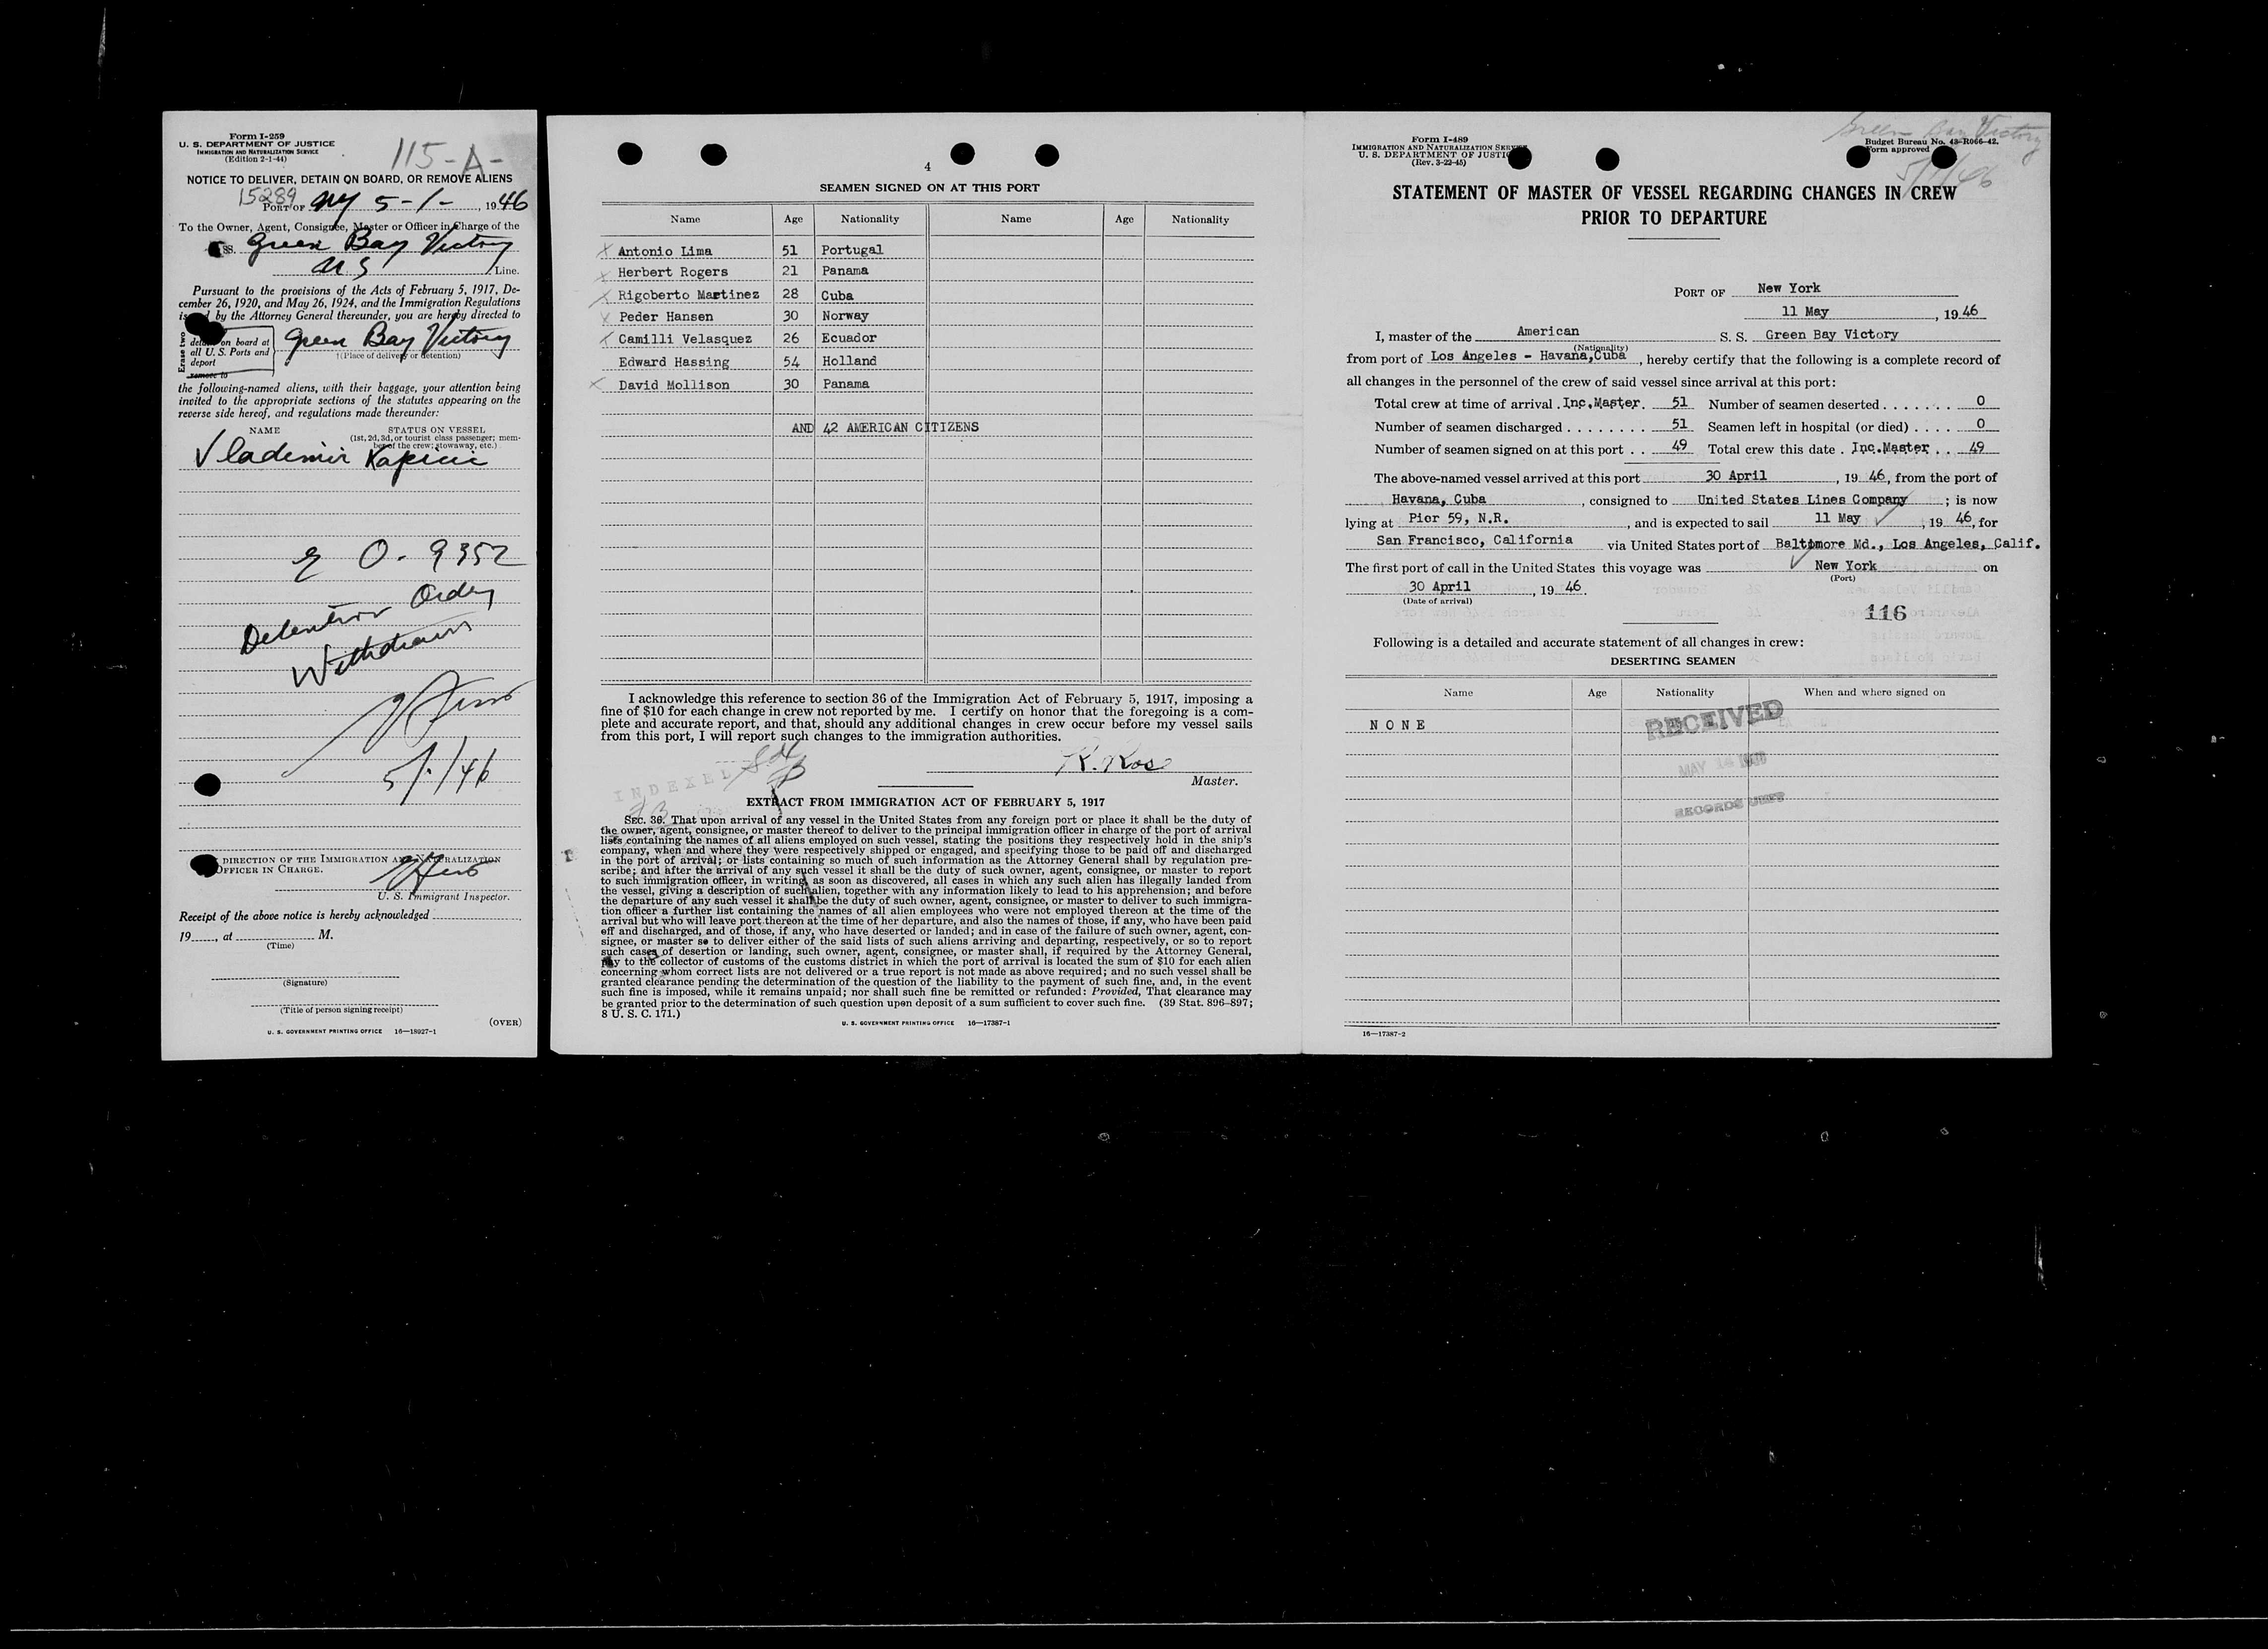 Form I-259
U. S. DEPARTMENT OF JUSTICE
IMMIGRATION AND NATURALIZATION SERVICE
(Edition 2-1-44)
115-A-
NOTICE TO DELIVER, DETAIN ON BOARD, OR REMOVE ALIENS
15289
PORT OF NY 5-1-, 1946
To the Owner, Agent, Consignee, Master or Officer in Charge of the
SS. Green Bay Victory
U S Line.
Pursuant to the provisions of the Acts of February 5, 1917, De-
cember 26, 1920, and May 26, 1924, and the Immigration Regulations
by the Attorney General thereunder, you are hereby directed to
Erase two
on board at
all U. S. Ports and
deport
remove to
Green Bay Victory
†(Place of delivery or detention)
the following-named aliens, with their baggage, your attention being
invited to the appropriate sections of the statutes appearing on the
reverse side hereof, and regulations made thereunder:
NAME STATUS ON VESSEL
(1st, 2d, 3d, or tourist class passenger; mem-
ber of the crew; stowaway, etc.)
Vladimir Kapicic
E O- 9352
Detention Order
Withdrawn
5/1/46
DIRECTION OF THE IMMIGRATION AND NATURALIZATION
OFFICER IN CHARGE.
U. S. Immigrant Inspector.
Receipt of the above notice is hereby acknowledged
19, at M.
(Time)
(Signature)
(Title of person signing receipt)
(OVER)
U. S. GOVERNMENT PRINTING OFFICE 16—18927-1
4
SEAMEN SIGNED ON AT THIS PORT
Name Age Nationality Name Age Nationality
X Antonio Lima 51 Portugal
X Herbert Rogers 21 Panama
X Rigoberto Martinez 28 Cuba
X Peder Hansen 30 Norway
X Camilli Velasquez 26 Ecuador
Edward Hassing 54 Holland
X David Mollison 30 Panama
AND 42 AMERICAN CITIZENS
I acknowledge this reference to section 36 of the Immigration Act of February 5, 1917, imposing a
fine of $10 for each change in crew not reported by me. I certify on honor that the foregoing is a com-
plete and accurate report, and that, should any additional changes in crew occur before my vessel sails
from this port, I will report such changes to the immigration authorities.
INDEXED
R. Ros
Master.
EXTRACT FROM IMMIGRATION ACT OF FEBRUARY 5, 1917
SEC. 36. That upon arrival of any vessel in the United States from any foreign port or place it shall be the duty of
the owner, agent, consignee, or master thereof to deliver to the principal immigration officer in charge of the port of arrival
lists containing the names of all aliens employed on such vessel, stating the positions they respectively hold in the ship's
company, when and where they were respectively shipped or engaged, and specifying those to be paid off and discharged
in the port of arrival; or lists containing so much of such information as the Attorney General shall by regulation pre-
scribe; and after the arrival of any such vessel it shall be the duty of such owner, agent, consignee, or master to report
to such immigration officer, in writing, as soon as discovered, all cases in which any such alien has illegally landed from
the vessel, giving a description of such alien, together with any information likely to lead to his apprehension; and before
the departure of any such vessel it shall be the duty of such owner, agent, consignee, or master to deliver to such immigra-
tion officer a further list containing the names of all alien employees who were not employed thereon at the time of the
arrival but who will leave port thereon at the time of her departure, and also the names of those, if any, who have been paid
off and discharged, and of those, if any, who have deserted or landed; and in case of the failure of such owner, agent, con-
signee, or master so to deliver either of the said lists of such aliens arriving and departing, respectively, or so to report
such cases of desertion or landing, such owner, agent, consignee, or master shall, if required by the Attorney General,
pay to the collector of customs of the customs district in which the port of arrival is located the sum of $10 for each alien
concerning whom correct lists are not delivered or a true report is not made as above required; and no such vessel shall be
granted clearance pending the determination of the question of the liability to the payment of such fine, and, in the event
such fine is imposed, while it remains unpaid; nor shall such fine be remitted or refunded: Provided, That clearance may
be granted prior to the determination of such question upon deposit of a sum sufficient to cover such fine. (39 Stat. 896-897;
8 U. S. C. 171.)
U. S. GOVERNMENT PRINTING OFFICE 16—17387-1
Form I-489
IMMIGRATION AND NATURALIZATION SERVICE
U. S. DEPARTMENT OF JUSTICE
(Rev. 3-22-45)
Green Bay Victory
Budget Bureau No. 43-R066-42.
Form approved
5/1/46
STATEMENT OF MASTER OF VESSEL REGARDING CHANGES IN CREW
PRIOR TO DEPARTURE
PORT OF New York
11 May, 1946
I, master of the American S. S. Green Bay Victory
(Nationality)
from port of Los Angeles - Havana,Cuba, hereby certify that the following is a complete record of
all changes in the personnel of the crew of said vessel since arrival at this port:
Total crew at time of arrival Inc.Master. 51 Number of seamen deserted . . . . . . . 0
Number of seamen discharged . . . . . . . . 51 Seamen left in hospital (or died) . . . . 0
Number of seamen signed on at this port . . 49 Total crew this date . Inc.Master . . 49
The above-named vessel arrived at this port 30 April, 19 46, from the port of
Havana, Cuba, consigned to United States Lines Company; is now
lying at Pier 59, N.R., and is expected to sail 11 May, 19 46, for
San Francisco, California via United States port of Baltimore Md., Los Angeles, Calif.
The first port of call in the United States this voyage was New York on
(Port)
30 April, 19 46.
(Date of arrival)
116
Following is a detailed and accurate statement of all changes in crew:
DESERTING SEAMEN
Name Age Nationality When and where signed on
NONE
RECEIVED
MAY 1946
RECORDS UNIT
16—17387-2